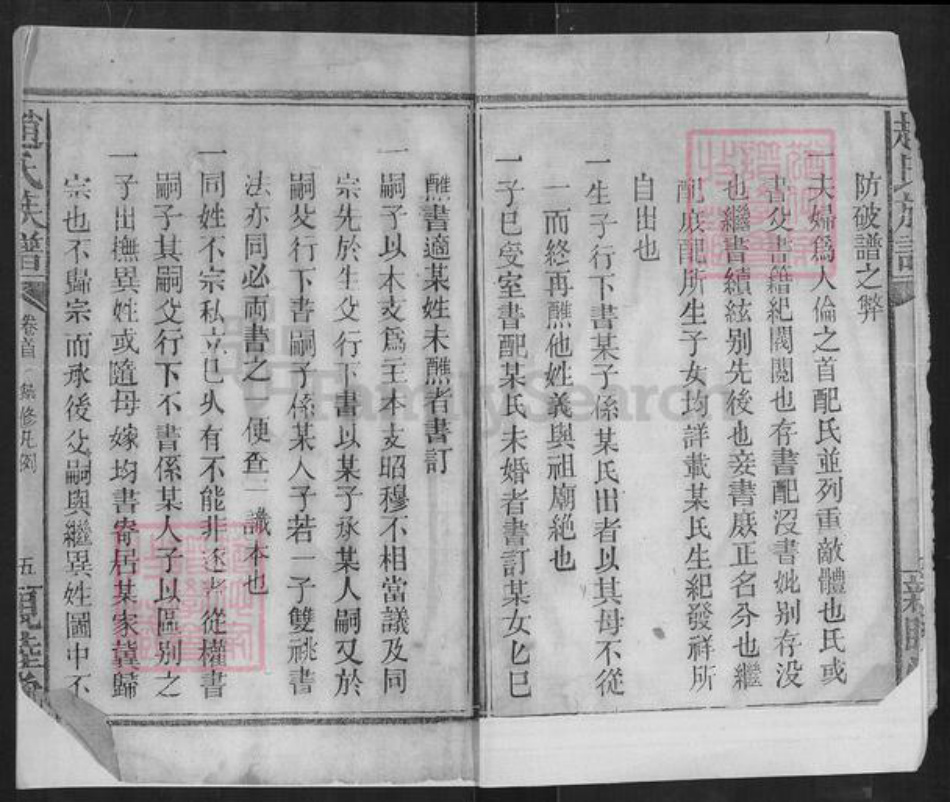 防破譜之弊
一夫婦爲人倫之首配氏並列重敵體也氏或
書父書籍紀閥閱也存書配沒書妣別存没
也繼書續絃別先後也妾書庶正名分也繼
配庶配所生子女均詳載某氏生紀發祥所
自出也
一生子行下書某子係某氏出者以其母不從
一而終再醮他姓義與祖廟絶也
一子已受室書配某氏未婚者書訂某女已
醮書適某姓未醮者書訂
一嗣子以本支爲主本支昭穆不相當議及同
宗先於生父行下書以某子承某人嗣又於
嗣父行下書嗣子係某人子若一子雙祧書
法亦同必両書之一便查一識本也
一同姓不宗私立已久有不能非逐者從權書
嗣子其嗣父行下不書係某人子以區別之
一子出撫異姓或隨母嫁均書寄居某家冀歸
宗也不歸宗而承後父嗣與繼異姓圖中不
趙氏族譜
卷首
修凡例
五
FamilySearch